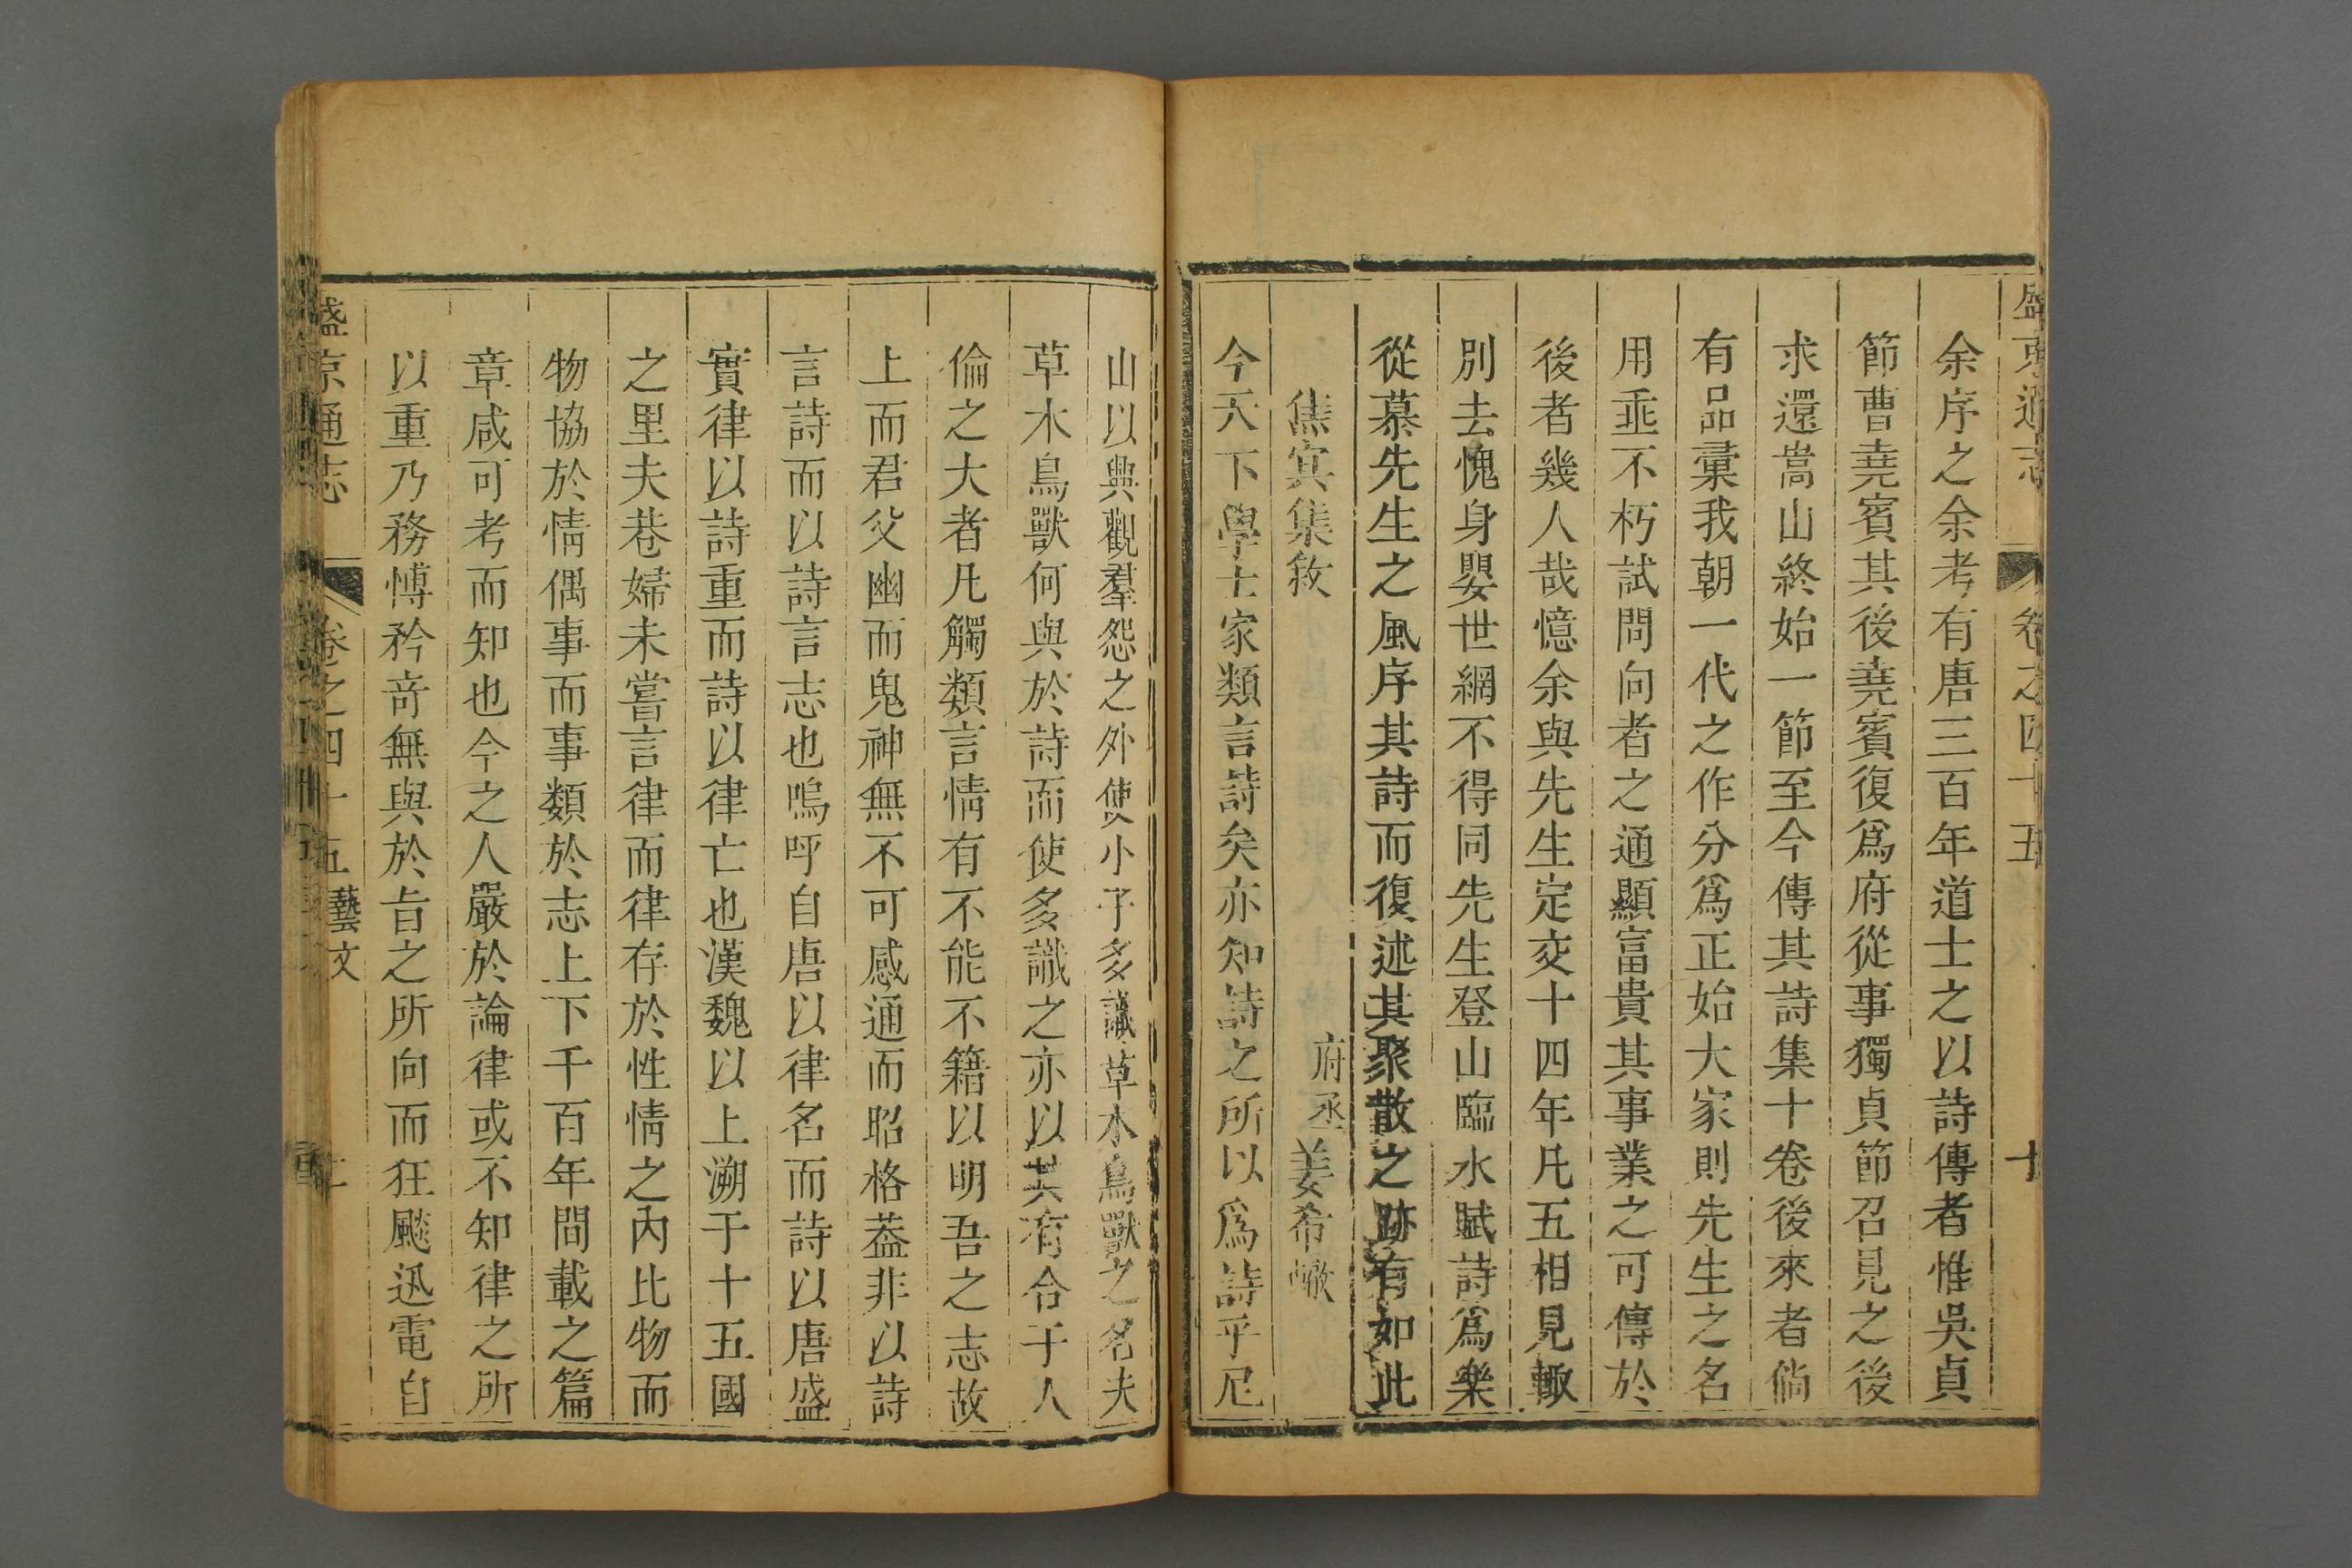 盛京通志 卷之四十五 十
余序之余考有唐三百年道士之以詩傳者惟吳貞
節曹堯賓其後堯賓復爲府從事獨貞節召見之後
求還嵩山終始一節至今傳其詩集十卷後來者倘
有品彚我朝一代之作分爲正始大家則先生之名
用垂不朽試問向者之通顯富貴其事業之可傳於
後者幾人哉憶余與先生定交十四年凡五相見輙
別去愧身嬰世網不得同先生登山臨水賦詩爲樂
從慕先生之風序其詩而復述其聚散之跡有如此
焦冥集敘 府丞姜希轍
今天下學士家類言詩矣亦知詩之所以爲詩乎尼
山以興觀羣怨之外使小子多識草木鳥獸之名夫
草木鳥獸何與於詩而使多識之亦以其有合于人
倫之大者凡觸類言情有不能不籍以明吾之志故
上而君父幽而鬼神無不可感通而昭格葢非以詩
言詩而以詩言志也嗚呼自唐以律名而詩以唐盛
實律以詩重而詩以律亡也漢魏以上溯于十五國
之里夫巷婦未嘗言律而律存於性情之內比物而
物協於情偶事而事類於志上下千百年間載之篇
章咸可考而知也今之人嚴於論律或不知律之所
以重乃務愽矜竒無與於旨之所向而狂飈迅電自
盛京通志 卷之四十五 藝文